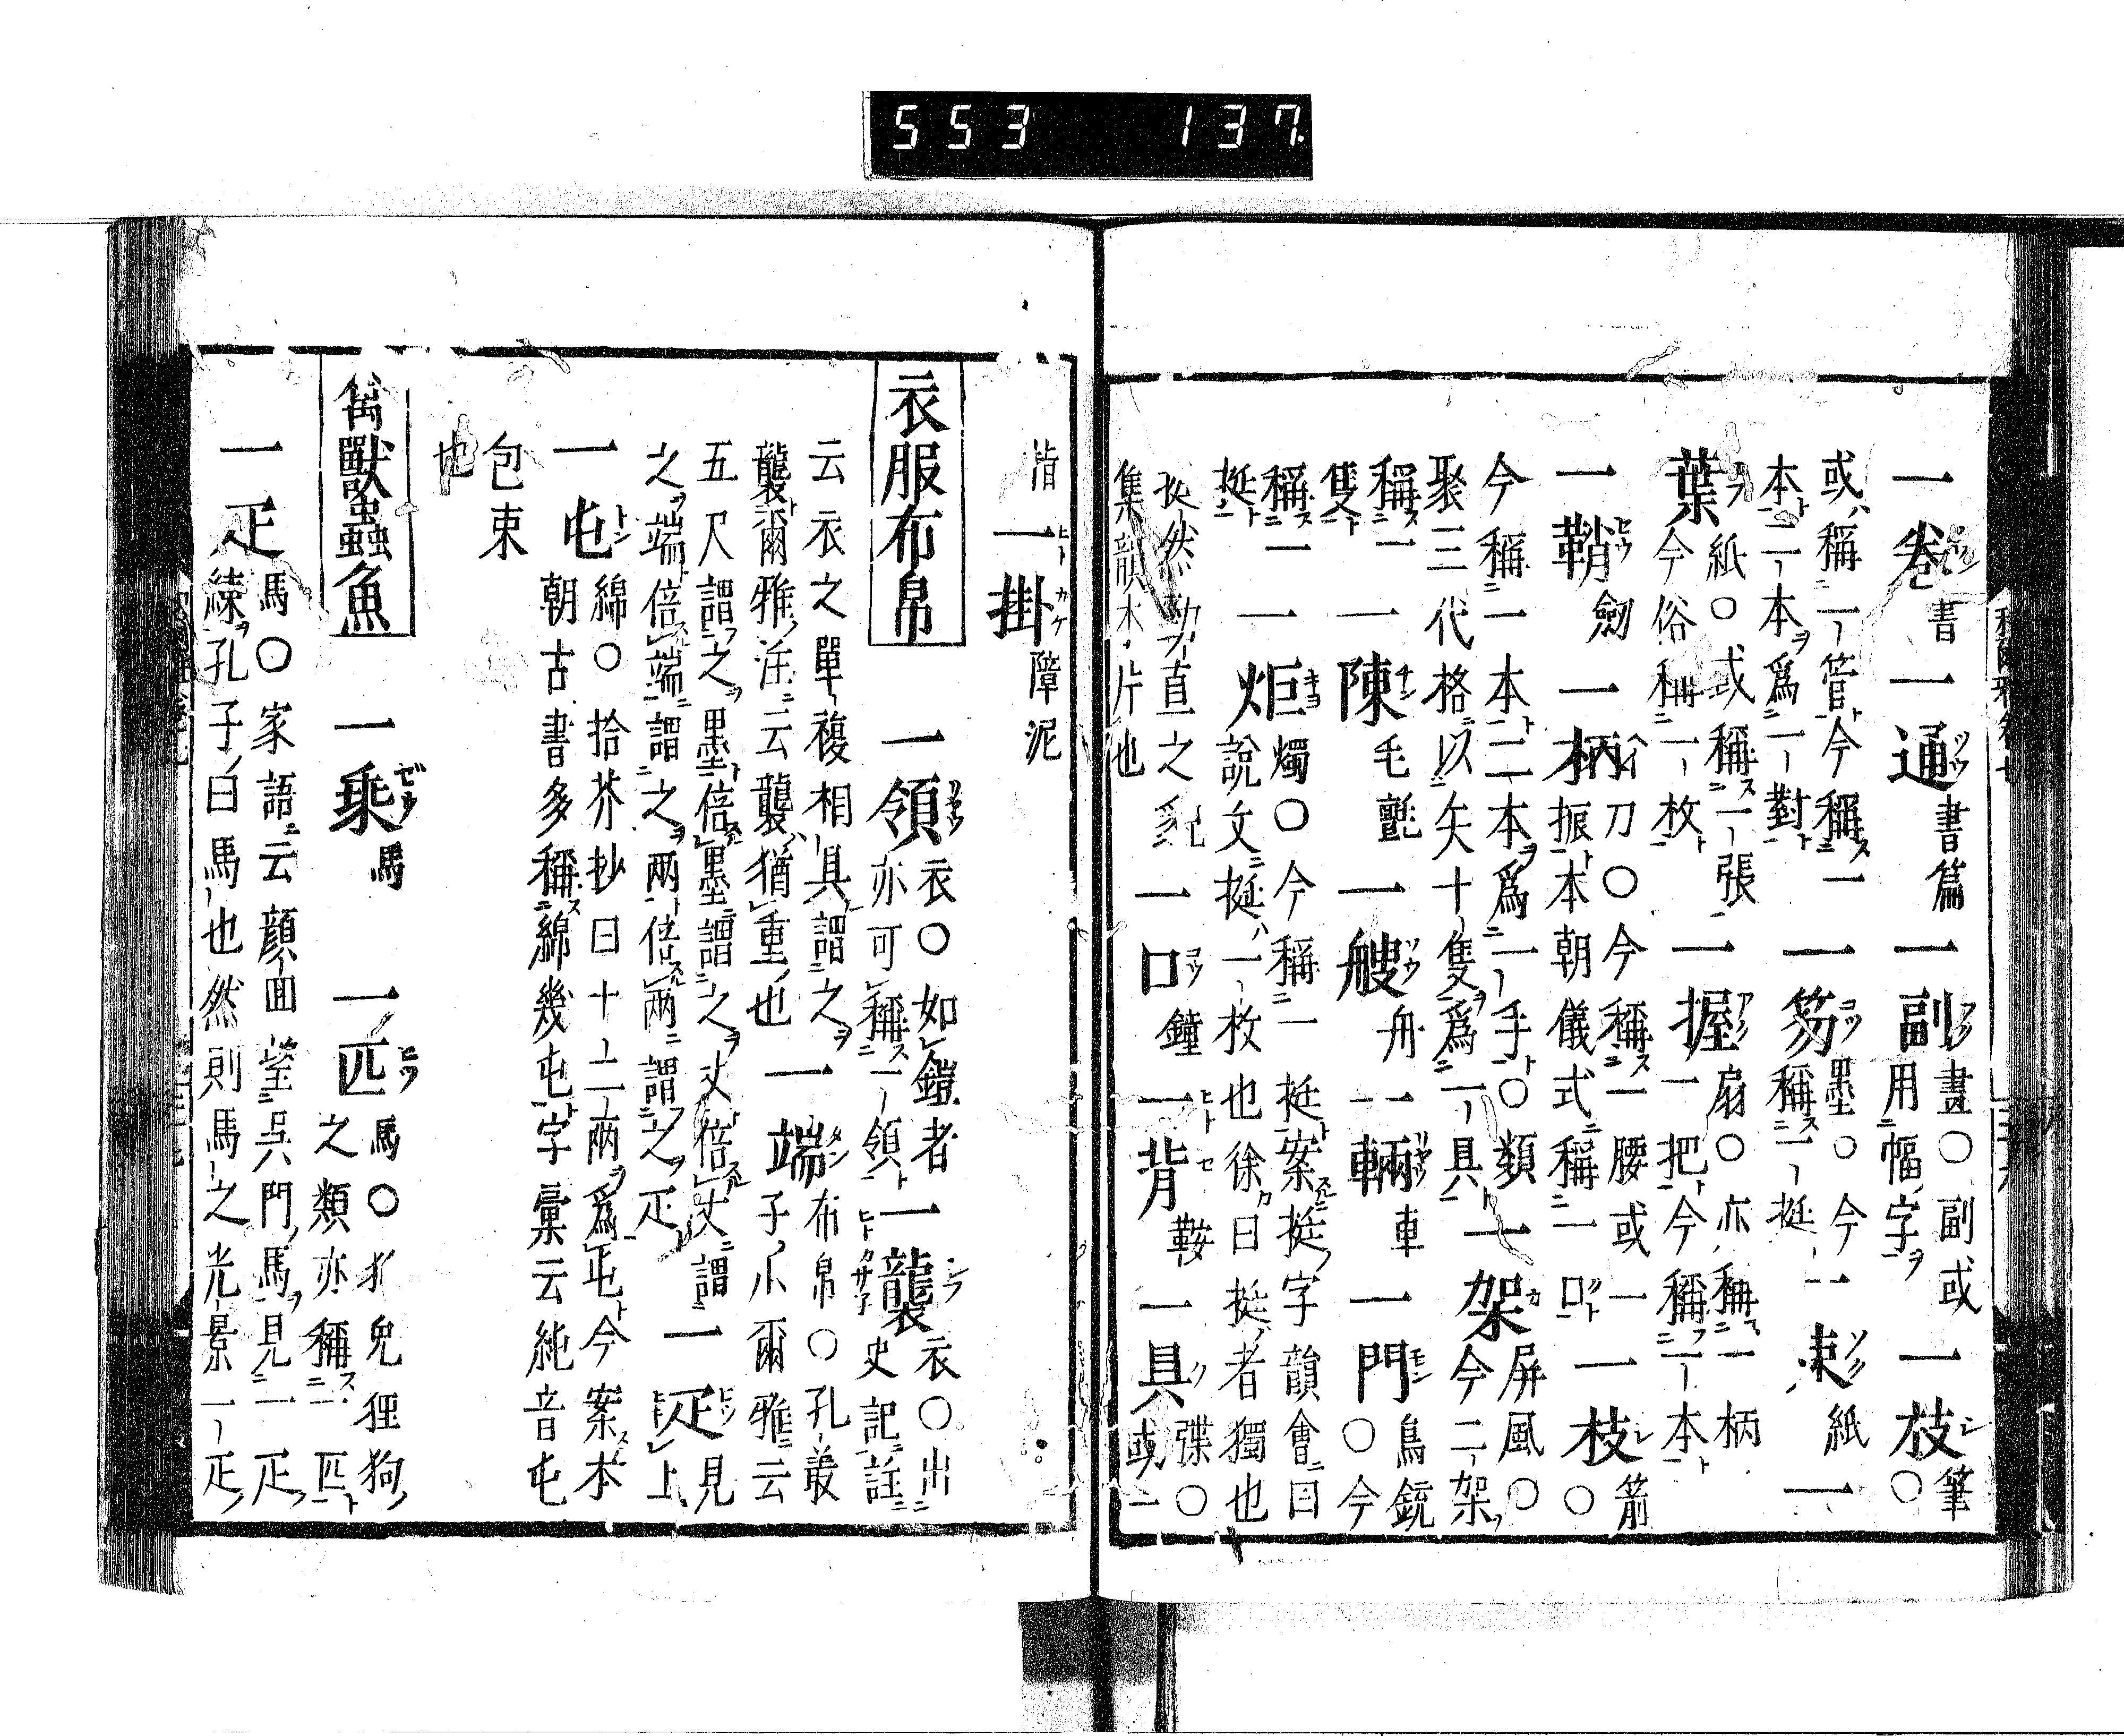 553 137
一卷書 一通書篇 一副畫〇副或用幅字 一枝筆〇
或稱一管今稱一本二本爲一對 一笏墨〇今稱一挺 一束紙 一
葉紙〇或稱一張今俗稱一枚 一握扇〇亦稱一柄一把今稱一本
一鞘劒 一柄刀〇今稱一腰或一振本朝儀式稱一口 一枝箭〇
今稱一本二本爲一手〇類聚三代格以矢十隻爲一具 一架屏風〇今二架
稱一隻 一陳毛氈 一艘舟 一輛車 一門鳥銃〇今
稱一挺 一炬燭〇今稱一挺案挺字韻會曰說文挺一枚也徐曰挺者獨也
挺然勁直之皃集韻木片也 一口鐘 一背鞍 一具弽〇或一
指 一掛障泥
衣服布帛 一領衣〇如鎧者亦可稱一領 一襲衣〇出史記註
云衣之單複相具謂之襲爾雅注云襲猶重也 一端布帛〇孔叢子小爾雅云
五尺謂之墨倍墨謂之丈倍丈謂之端倍端謂之兩倍兩謂之疋 一疋見上
一屯綿〇拾芥抄曰十二兩爲屯今案本朝古書多稱綿幾屯字彙云純音屯
包束也
禽獸蟲魚 一乘馬 一匹馬〇犬兔狸狗之類亦稱一匹
一疋馬〇家語云顔回望吳門馬見一疋練孔子曰馬也然則馬之光景一疋